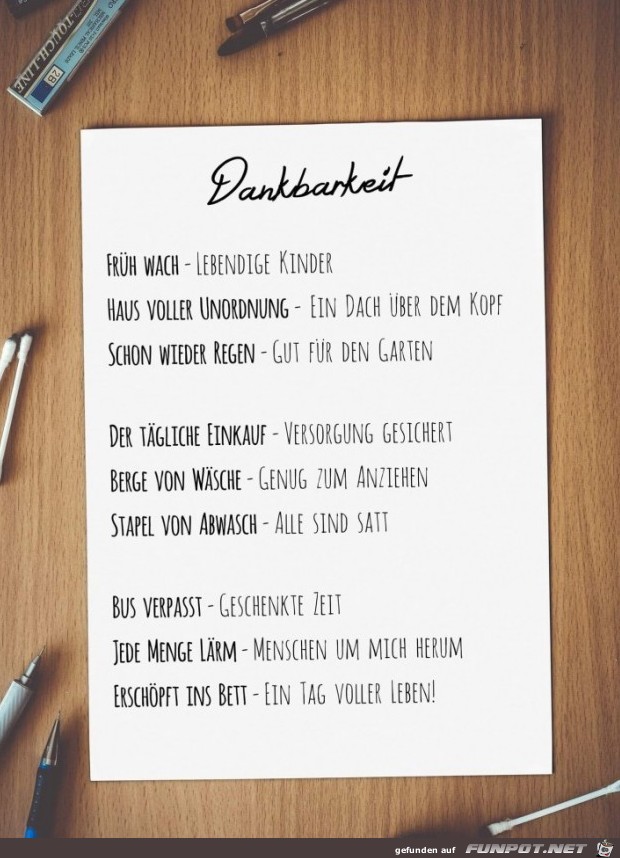 TOUCH-LINE
2B
Dankbarkeit
FRÜH WACH - LEBENDIGE KINDER
HAUS VOLLER UNORDNUNG - EIN DACH ÜBER DEM KOPF
SCHON WIEDER REGEN - GUT FÜR DEN GARTEN
DER TÄGLICHE EINKAUF - VERSORGUNG GESICHERT
BERGE VON WÄSCHE - GENUG ZUM ANZIEHEN
STAPEL VON ABWASCH - ALLE SIND SATT
BUS VERPASST - GESCHENKTE ZEIT
JEDE MENGE LÄRM - MENSCHEN UM MICH HERUM
ERSCHÖPFT INS BETT - EIN TAG VOLLER LEBEN!
gefunden auf FUNPOT.NET